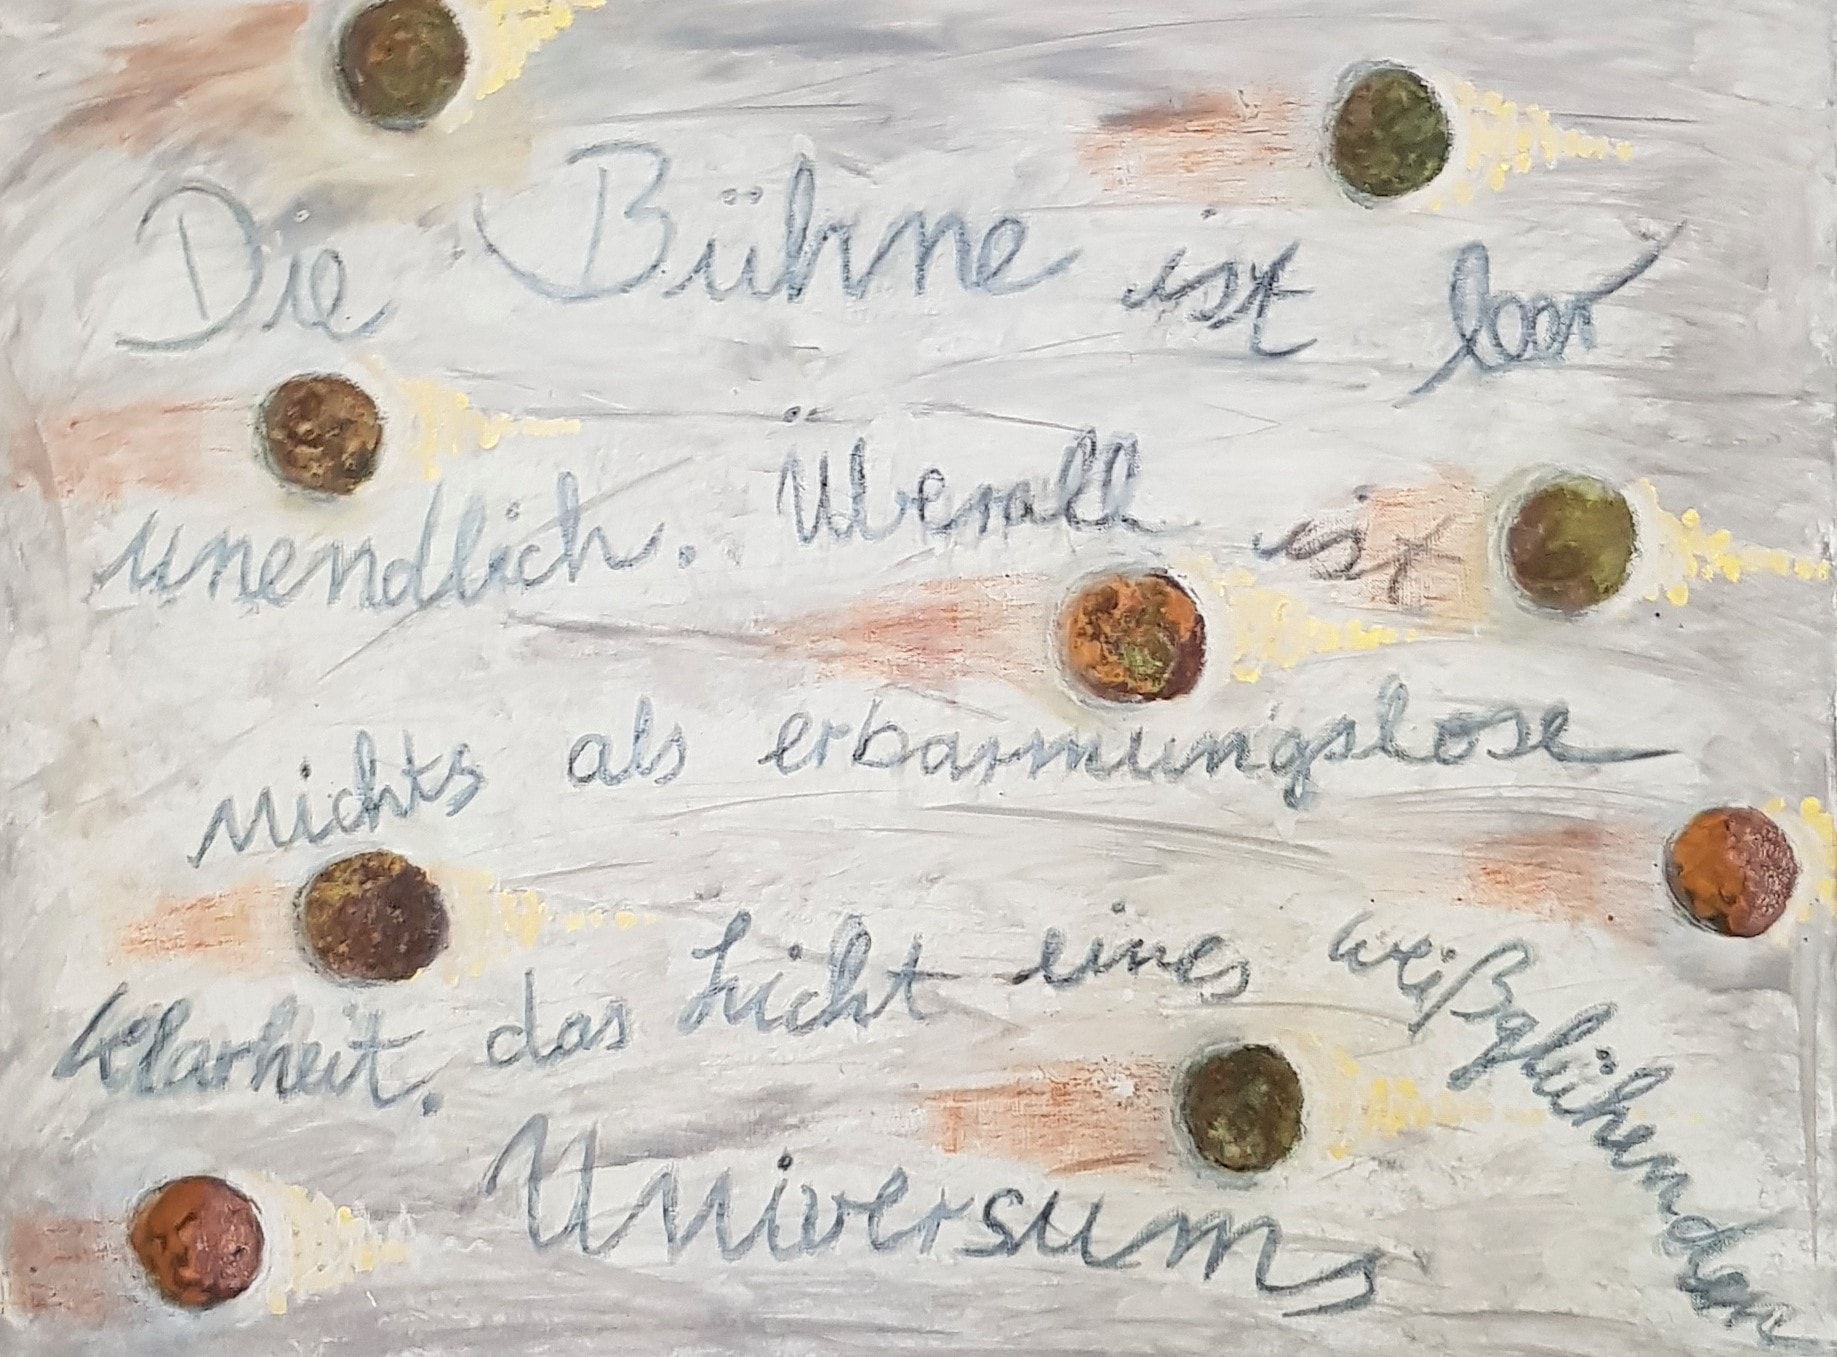 Die Bühne ist leer
unendlich. Überall ist
nichts als erbarmungslose
Klarheit. das Licht eines weißglühenden
Universums